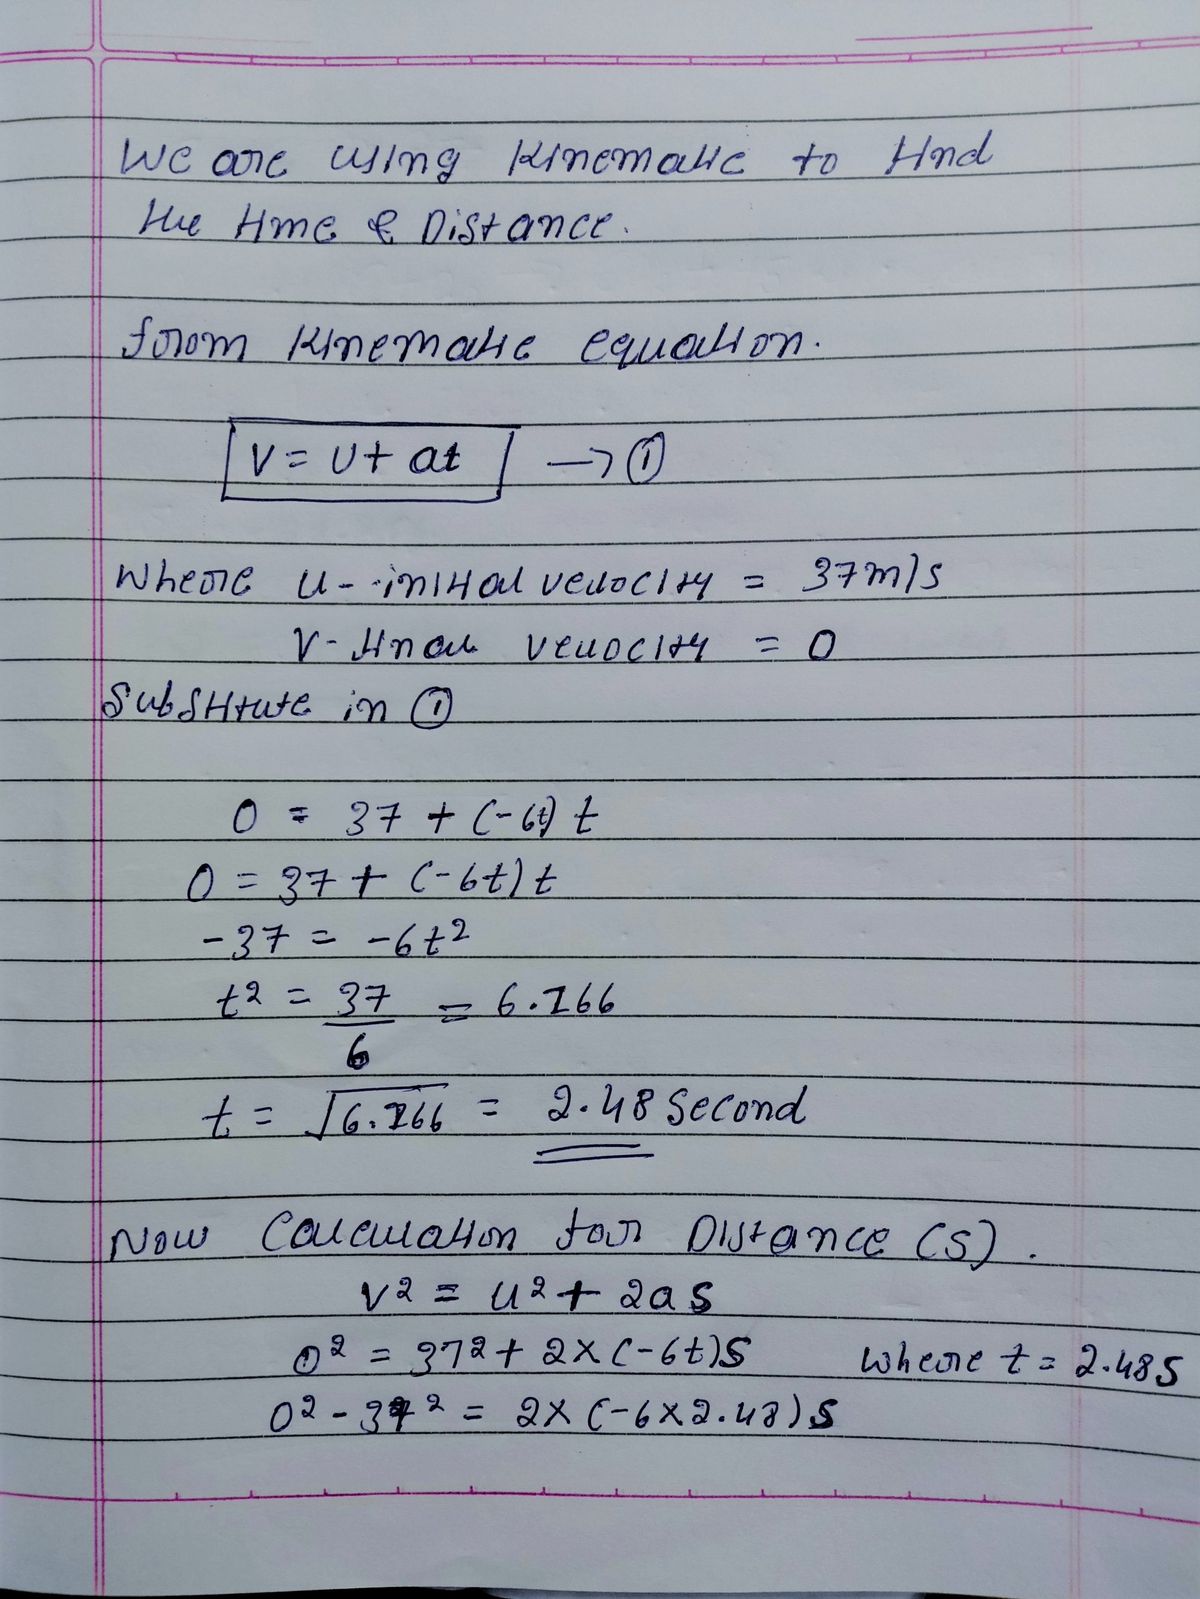 We are using kinematic to find
the time & Distance.
from kinematic equation.
V = U + at → ①
Where u - initial velocity = 37m/s
V - final velocity = 0
Substitute in ①
0 = 37 + (-6t) t
0 = 37 + (-6t) t
-37 = -6t²
t² = 37/6 = 6.166
t = √6.166 = 2.48 Second
Now Calculation for Distance (S).
v² = u² + 2as
0² = 37² + 2×(-6t)S where t = 2.48s
0² - 37² = 2×(-6×2.48)s